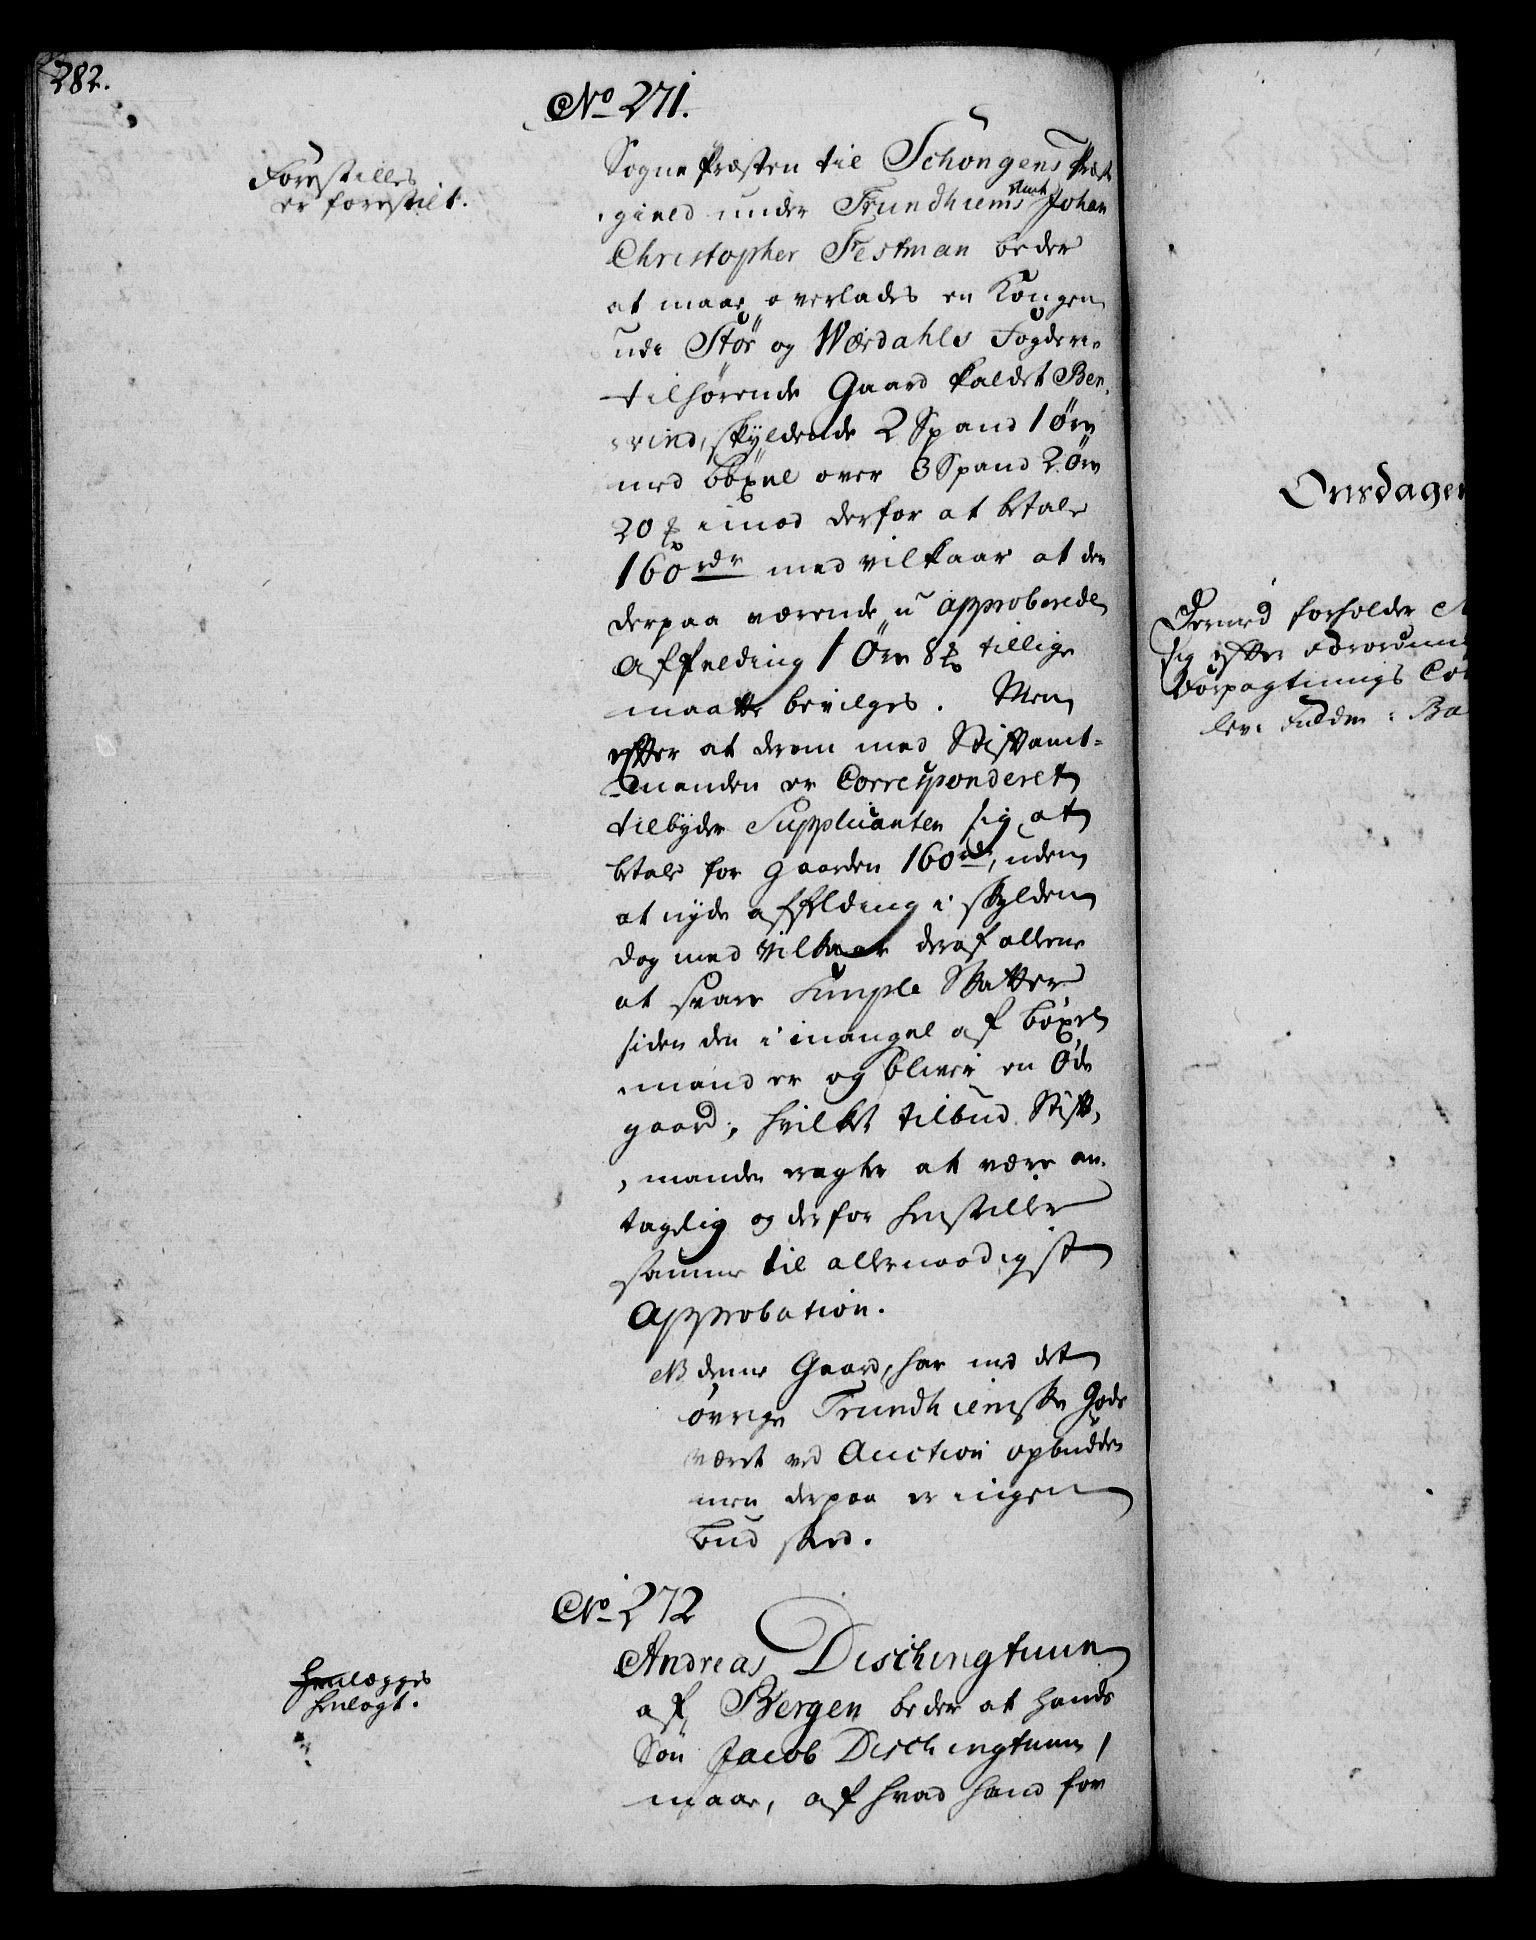 282.
No 271.
Forestilles
er forestilt.
Sogne Præsten til Schongens Præste
gield under Trundhiems Amt Johan
Christopher Festman beder
at maae overlades en Kongen
udi Stör og Værdahls Fogderie
tilhørende Gaard kaldet Ber,
vind, skyldende 2 Spand 1 øre
med böxel over 3 Spand 2 Øre
20 imod derfor at betale
160 rdr med vilkaar at den
derpaa værende u approberede
Affælding 1 Øre 8 tillige
maatte bevilges. Men
efter at derom med Stiftamt-
manden er Corresponderet
tilbyder Supplicanten sig, at
betale for gaarden 160 rdr, uden
at nyde affelding i skylden
dog med Vilkaar deraf allene
at svare Simple Skatter
siden den i mangel af böxel
mand er og bliver en Øde
gaard, hvilket tilbud Stift,
manden eragter at være an,
tagelig og derfor henstiller
samme til allernaadigst
Approbation.
NB denne Gaard, har med det
øvrige Trundhiemske Gods
været ved Auction opbudden
men derpaa er ingen
bud skeed.
No 272
Henlægges
henlagt.
Andreas Dischingtuun
af Bergen beder at hands
Sön Jacob Dischingtuun,
maae, af hvad hand for
Onsdagen
Dermed forholder
sig efter Forordning
Forpagtnings Con
lev: Fuldm: